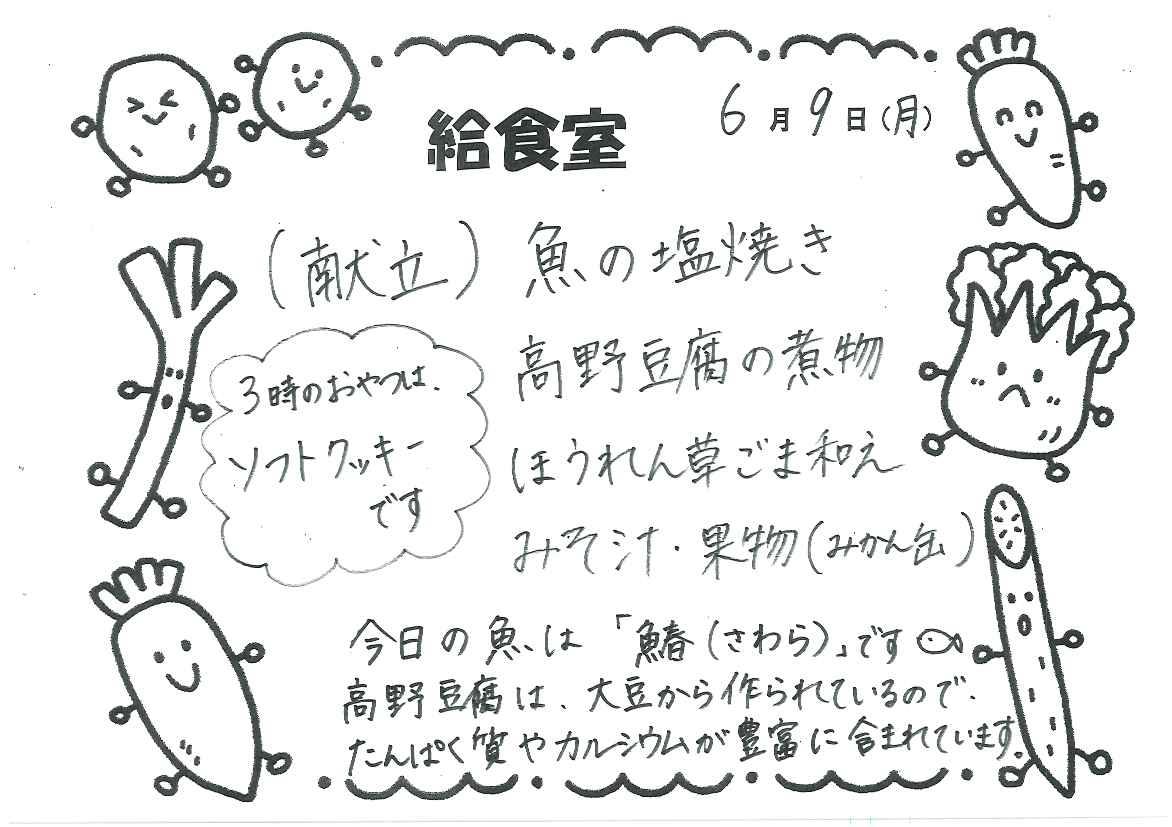 給食室
6月9日(月)
(献立) 魚の塩焼き
高野豆腐の煮物
ほうれん草ごま和え
みそ汁・果物(みかん缶)
3時のおやつは、
ソフトクッキー
です
今日の魚は「鰆(さわら)」です
高野豆腐は、大豆から作られているので、
たんぱく質やカルシウムが豊富に含まれています。